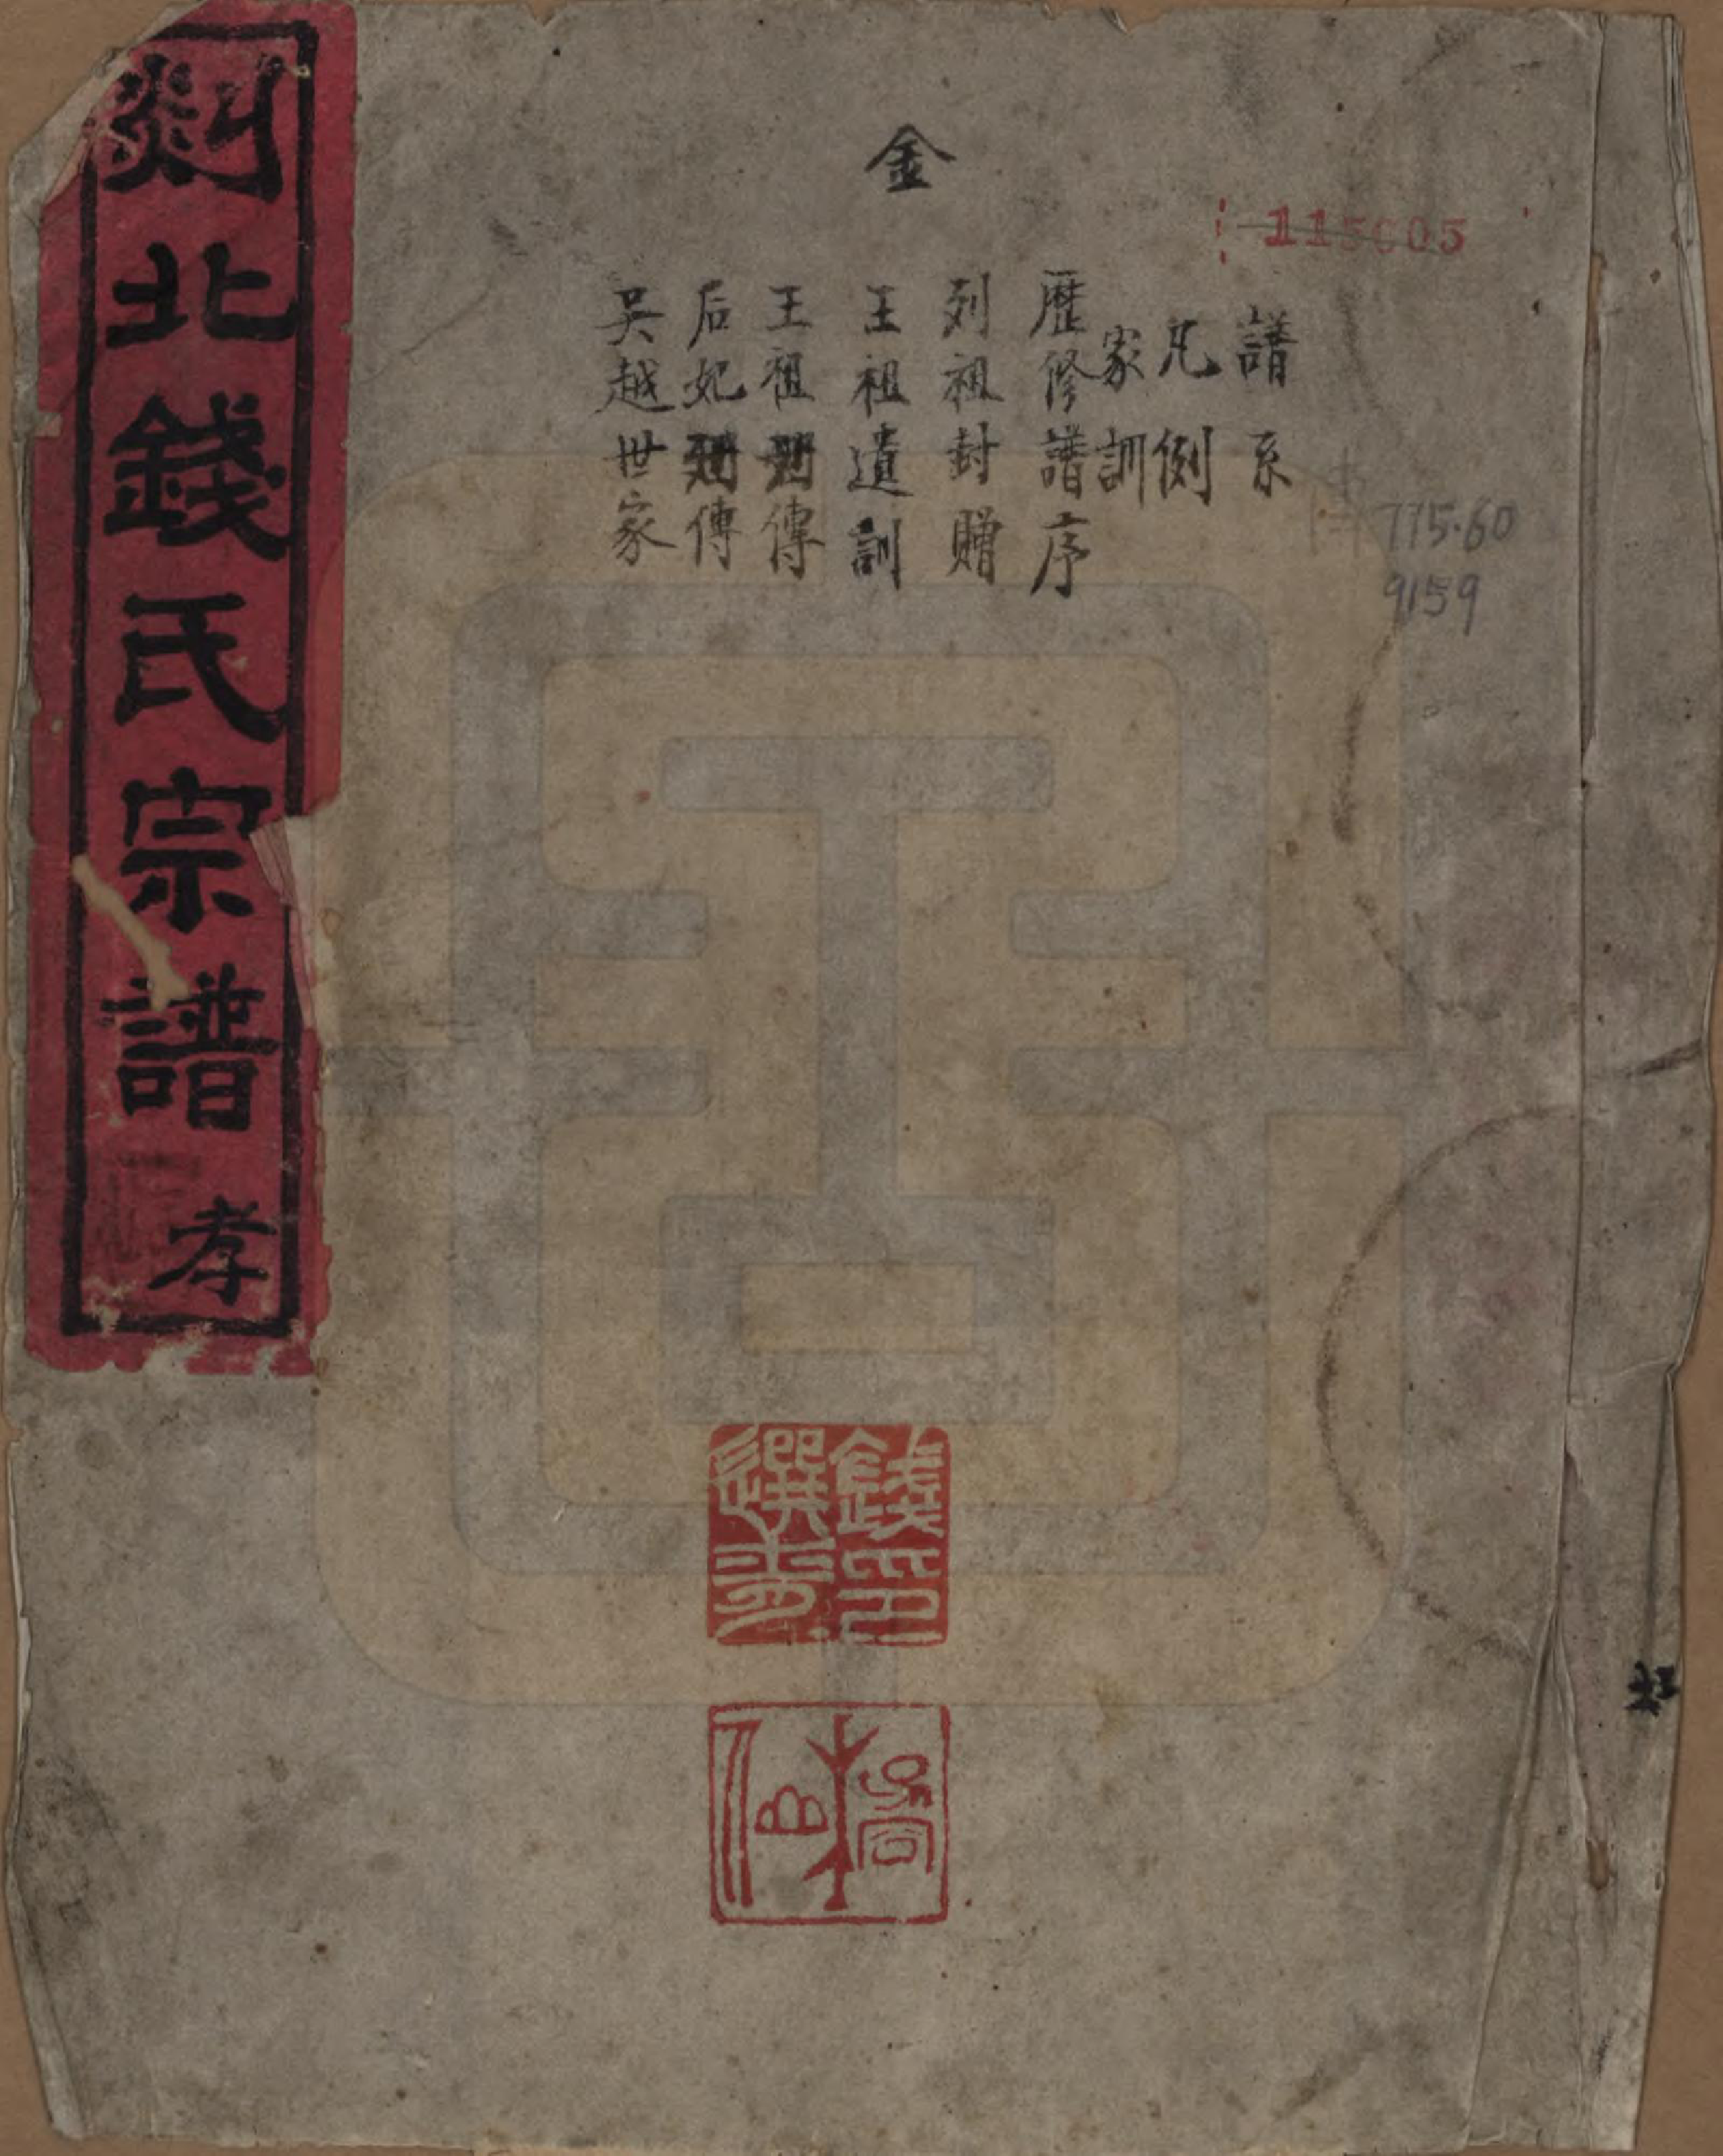 金
115605
譜系
凡例
家訓
歷修譜序
列祖封贈
王祖遺訓
王祖列傳
后妃列傳
吳越世家
775.60
9159
剡北錢氏宗譜 孝
錢印
選青